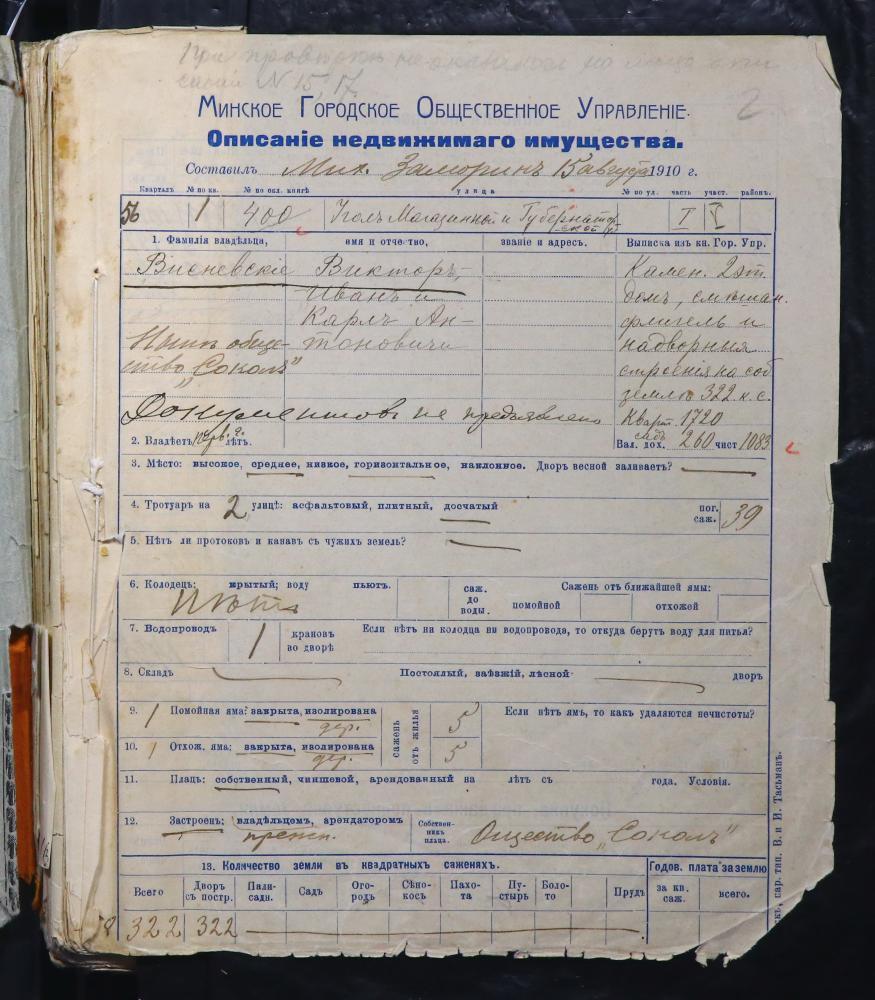 При
N 15, 17.
2
Минское Городское Общественное Управленіе.
Описаніе недвижимаго имущества.
Составилъ Мих. Заморинъ 15 августа 1910 г.
Кварталъ № по кв. № по окл. книгѣ улица № по ул. часть участ. районъ.
56 1 400 Уголъ Магазинной и Губернатор
ской ул I V
1. Фамилія владѣльца, имя и отчество, званіе и адресъ. Выписка изъ кн. Гор. Упр.
Висневскіе Викторъ, Камен. 2 эт.
Иванъ и домъ, смѣшан.
Карлъ Ан- флигель и
Нынѣ обще- тоновичи надворныя
ство „Соколъ" строенія на соб
землѣ 322 к. с.
Документовъ не предъявлено Кварт. 1720
садъ
2. Владѣетъ перв. г. лѣтъ. Вал. дох. 260 чист 1083
3. Мѣсто: высокое, среднее, низкое, горизонтальное, наклонное. Дворъ весной заливаетъ?
4. Тротуаръ на 2 улицѣ: асфальтовый, плитный, досчатый пог. саж. 39
5. Нѣтъ ли протоковъ и канавъ съ чужихъ земель?
6. Колодецъ: крытый; воду пьютъ. саж. до воды. Сажень отъ ближайшей ямы:
помойной отхожей
7. Водопроводъ 1 крановъ во дворѣ Если нѣтъ ни колодца ни водопровода, то откуда берутъ воду для питья?
8. Складъ Постоялый, заѣзжій, лѣсной дворъ
9. 1 Помойная яма: закрыта, изолирована сажень отъ жилья 5 Если нѣтъ ямъ, то какъ удаляются нечистоты?
дер.
10. 1 Отхож. яма: закрыта, изолирована 5
дер.
11. Плацъ: собственный, чиншевой, арендованный на лѣтъ съ года. Условія.
12. Застроенъ: владѣльцемъ, арендаторомъ Собственникъ плаца. Общество „Соколъ"
прежн.
13. Количество земли въ квадратныхъ саженяхъ. Годов. плата за землю
Всего Дворъ съ постр. Палисадн. Садъ Огородъ Сѣнокосъ Пахота Пустырь Болото Прудъ за кв. саж. всего.
322 322
скъ, пар. тип. Б. и И. Тасьманъ.